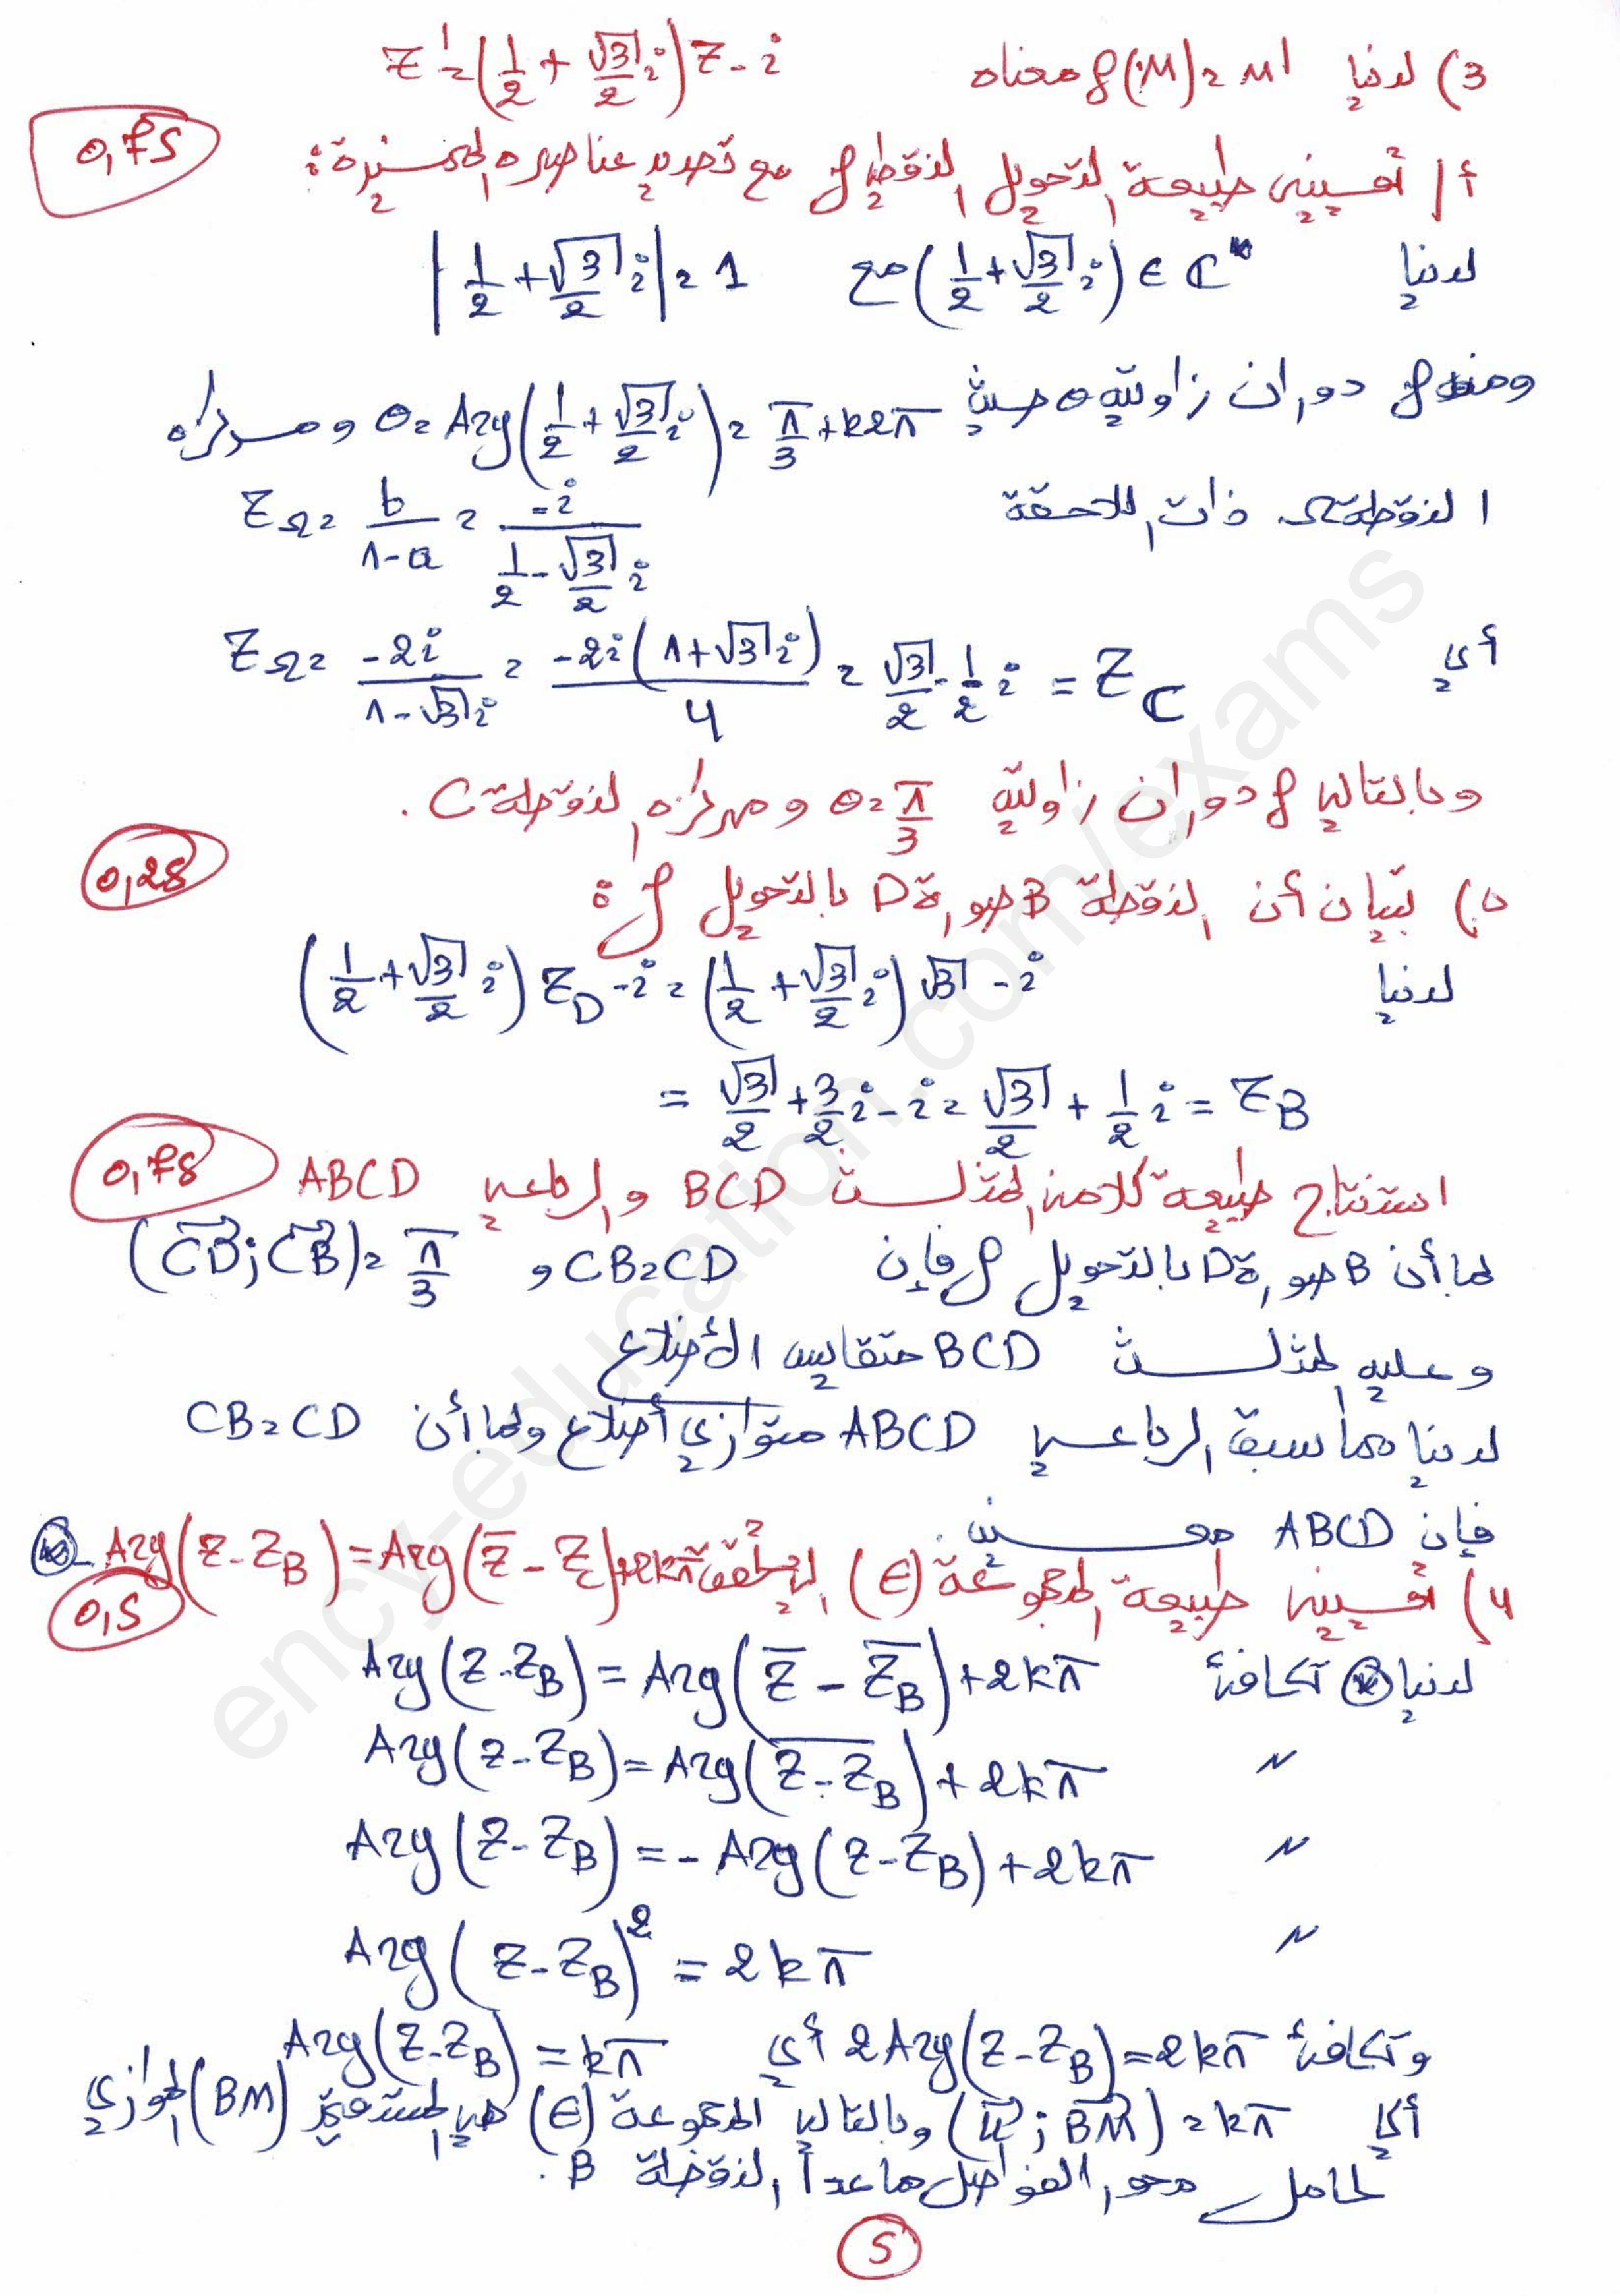 3) لدينا f(M)=M' معناه z'=(1/2+√3/2 i)z-i
أ/ تعيين طبيعة التحويل النقطي f مع تحديد عناصره المميزة: 0,75
لدينا (1/2+√3/2 i)∈ℂ* مع |1/2+√3/2 i|=1
ومنه f دوران زاويته θ حيث θ=Arg(1/2+√3/2 i)=π/3+k2π ومركزه
النقطة Ω ذات اللاحقة z_Ω=b/(1-a)=-i/(1/2-√3/2 i)
أي z_Ω=-2i/(1-√3i)=-2i(1+√3i)/4=√3/2-1/2 i=z_C
وبالتالي f دوران زاويته θ=π/3 ومركزه النقطة C.
ب) تبيان أن النقطة B صورة D بالتحويل f: 0,25
لدينا (1/2+√3/2 i)z_D-i=(1/2+√3/2 i)√3-i
=√3/2+3/2 i-i=√3/2+1/2 i=z_B
استنتاج طبيعة كلا من المثلث BCD والرباعي ABCD 0,75
بما أن B صورة D بالتحويل f فإن CB=CD و (CD;CB)=π/3
وعليه المثلث BCD متقايس الأضلاع
لدينا مما سبق الرباعي ABCD متوازي أضلاع وبما أن CB=CD
فإن ABCD معين.
4) تعيين طبيعة المجموعة (E) Arg(z-z_B)=Arg(z̄-z_C)+2kπ 0,5
لدينا ⊛ تكافئ Arg(z-z_B)=Arg(z̄-z̄_B)+2kπ
〃 Arg(z-z_B)=Arg(\overline{z-z_B})+2kπ
〃 Arg(z-z_B)=-Arg(z-z_B)+2kπ
〃 Arg(z-z_B)²=2kπ
وتكافئ 2Arg(z-z_B)=2kπ أي Arg(z-z_B)=kπ
أي (u;BM)=kπ وبالتالي المجموعة (E) هي المستقيم (BM) الموازي
لحامل محور الفواصل ما عدا النقطة B.
5
ency-education.com/exams